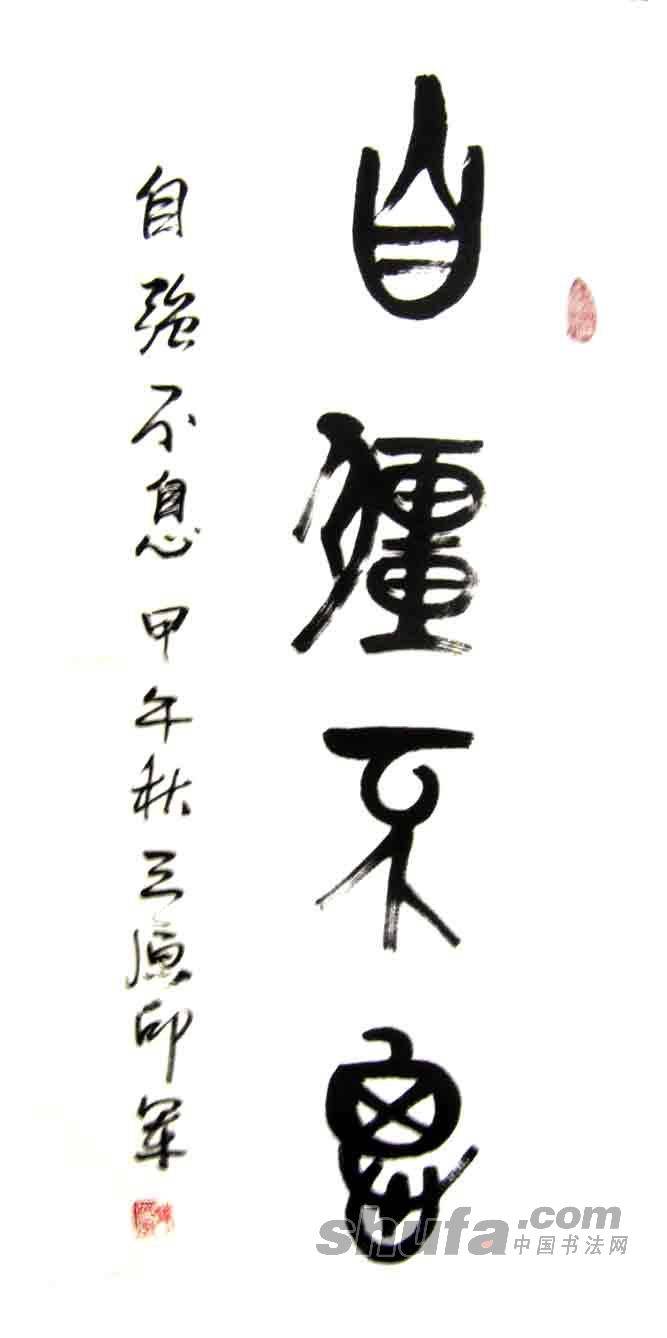 自彊不息
自強不息 甲午秋 三原印军
shufa.com
中国书法网